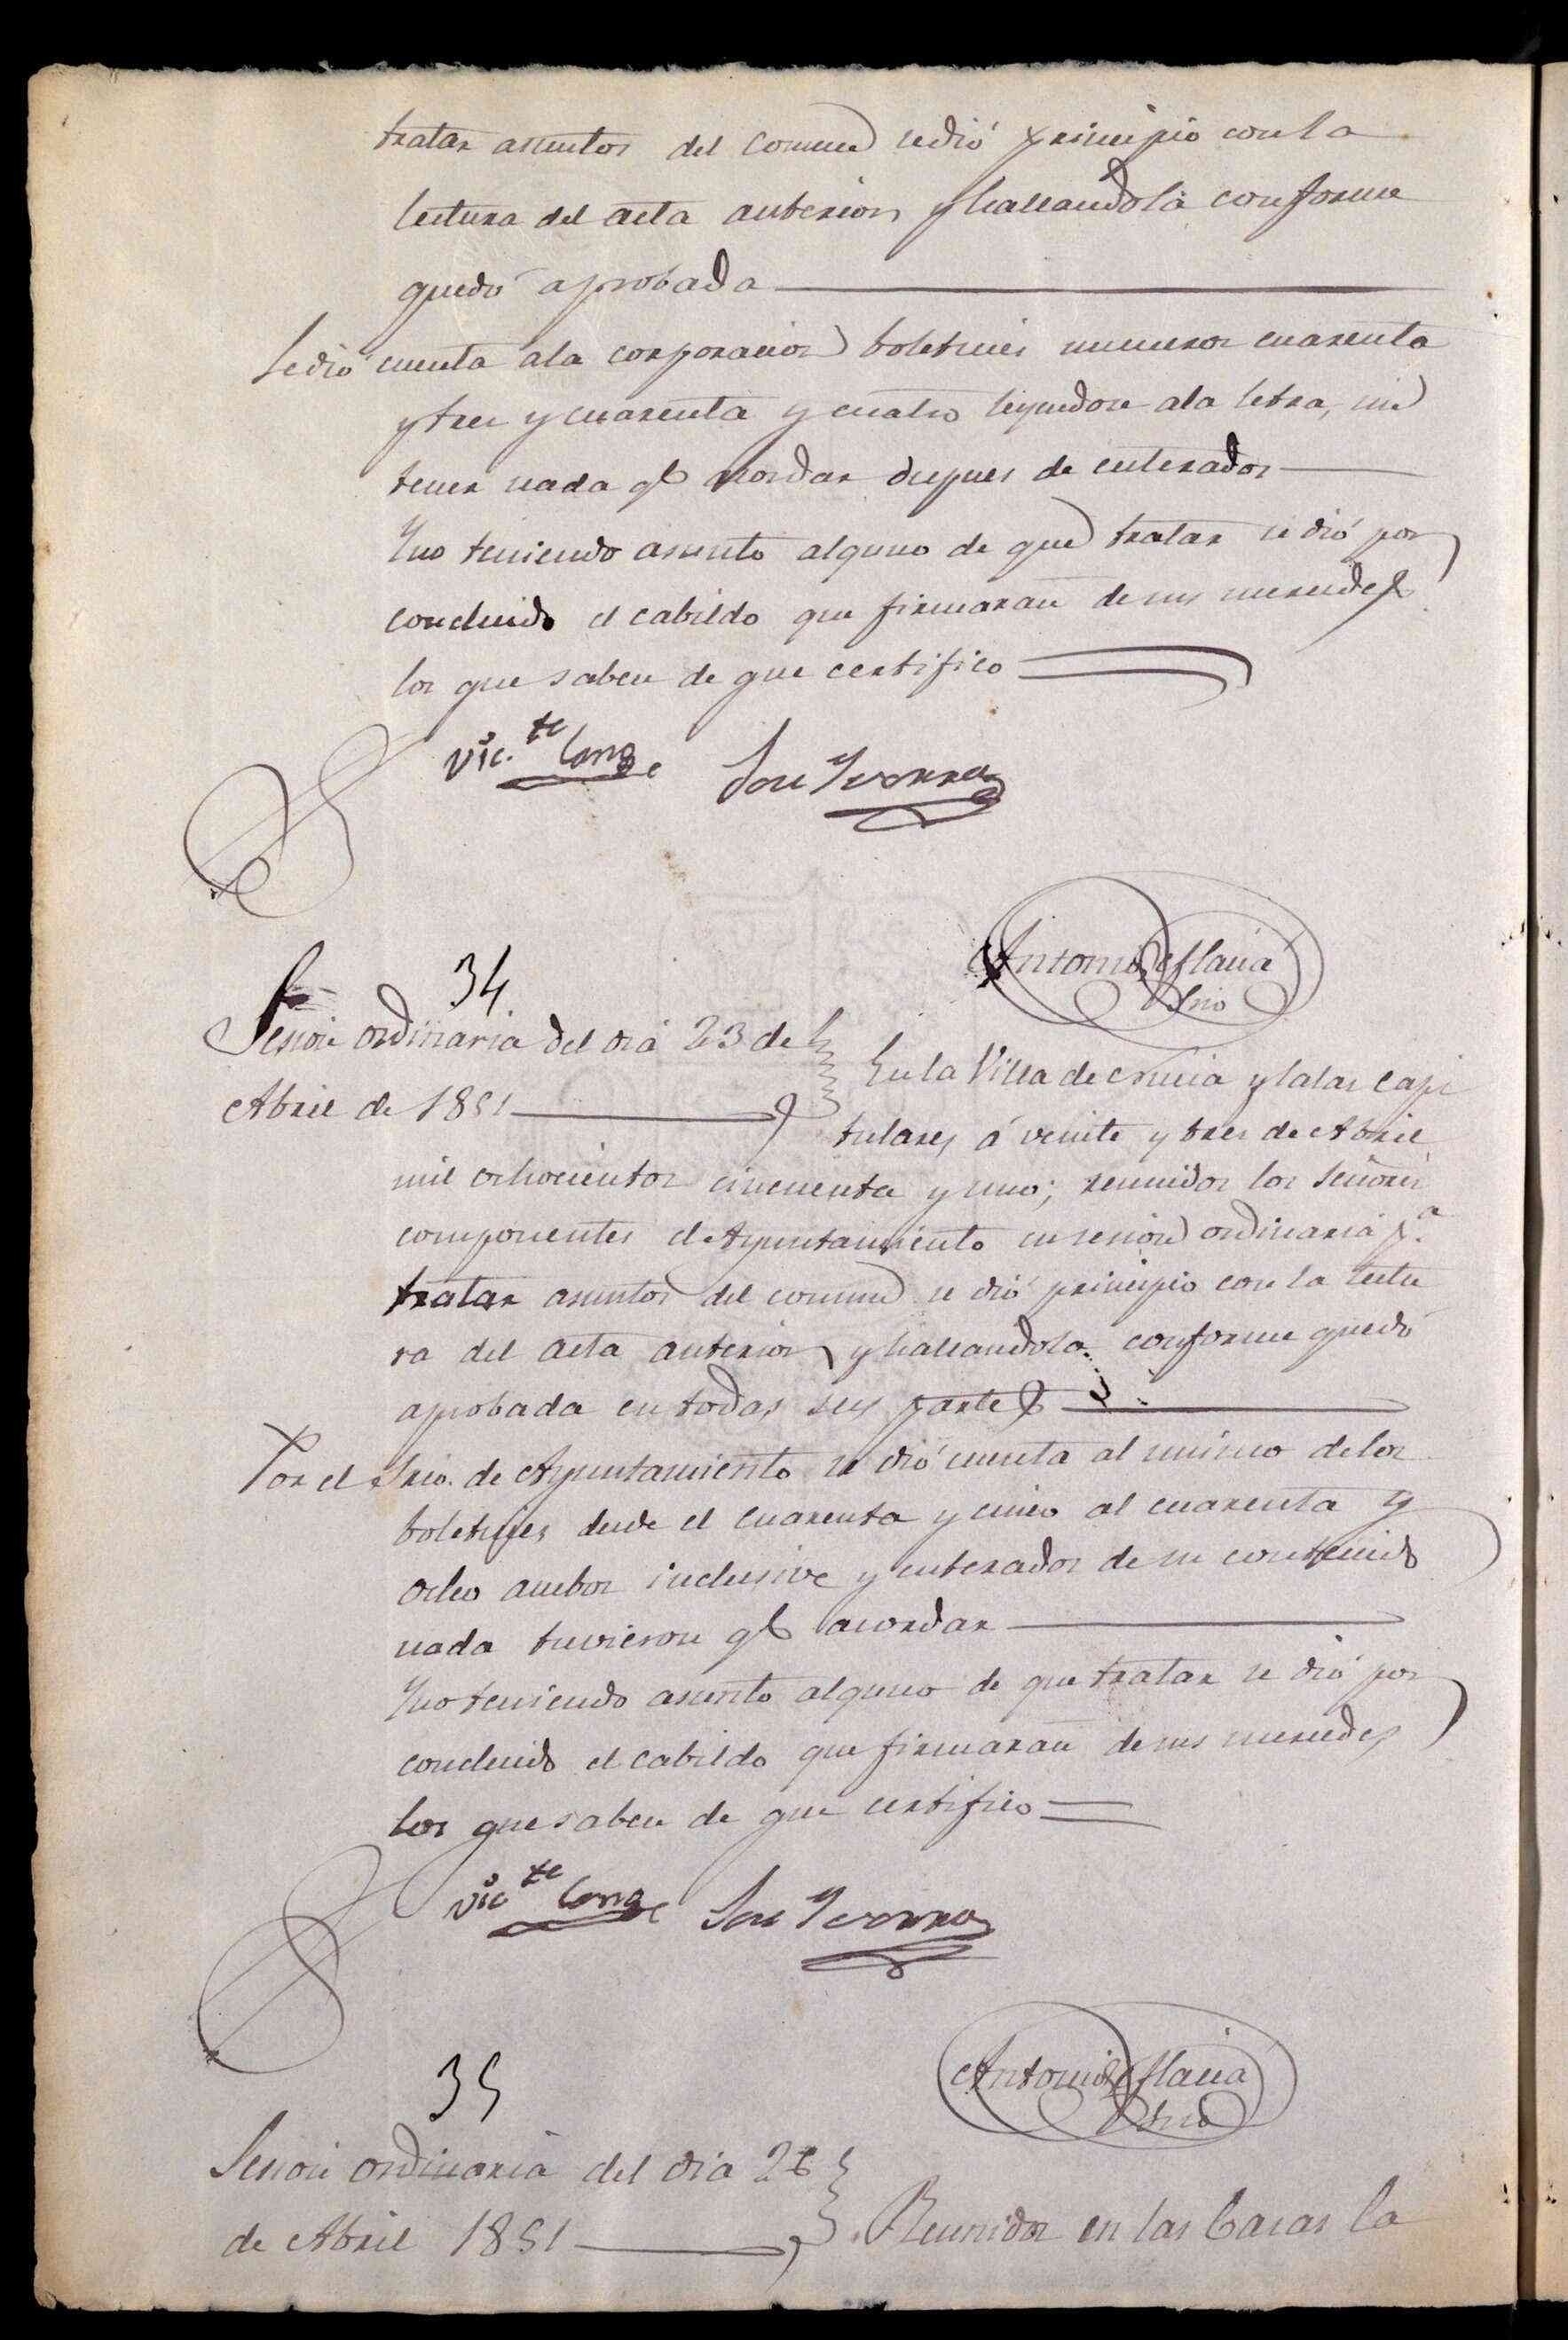 tratar asuntos del comun se dió principio con la
lectura del acta anterior y hallandola conforme
quedó aprobada
Se dió cuenta a la corporacion boletines numeros cuarenta
y tres y cuarenta y cuatro leyendose a la letra, sin
tener nada q.e acordar despues de enterados
Y no teniendo asunto alguno de que tratar se dió por
concluido el cabildo que firmaran de sus mercedes
los que saben de que certifico
Vic.te Llorca Jose Yvorra
Antonio Maciá
Srio
34
Sesion ordinaria del dia 23 de
Abril de 1851
En la Villa de y Salas Capi
tulares á veinte y tres de Abril
mil ochocientos cincuenta y uno; reunidos los Señores
componentes el Ayuntamiento en sesion ordinaria p.a
tratar asuntos del comun se dió principio con la lectu
ra del acta anterior y hallandola conforme quedó
aprobada en todas sus partes
Por el Srio. de Ayuntamiento se dió cuenta al mismo de los
boletines desde el cuarenta y cinco al cuarenta y
ocho ambos inclusive y enterados de su contenido
nada tuvieron q.e acordar
Y no teniendo asunto alguno de que tratar se dió por
concluido el cabildo que firmaran de sus mercedes
los que saben de que certifico
Vic.te Llorca Jose Yvorra
Antonio Maciá
Srio
35
Sesion ordinaria del dia 26
de Abril 1851
Reunidos en las Casas Ca